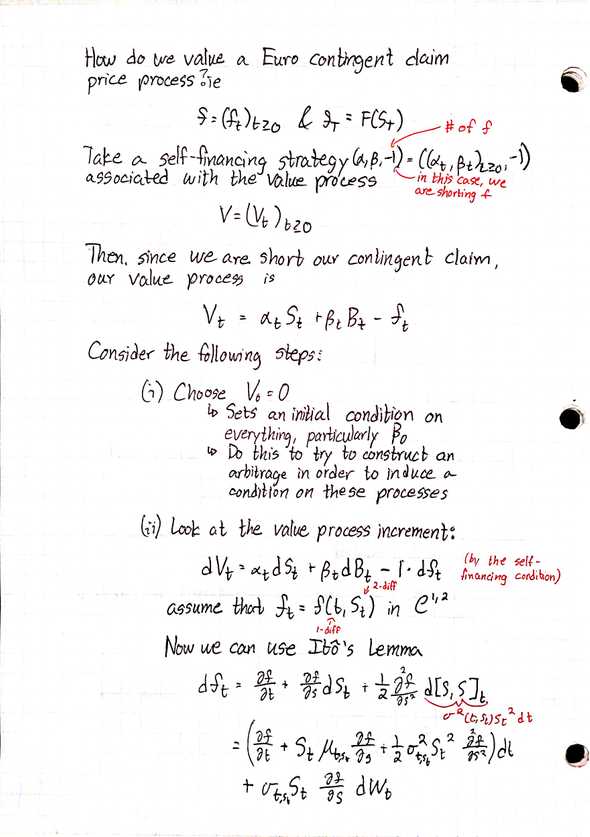 How do we value a Euro contingent claim
price process? ie
f = (f_t)_{t≥0} & f_T = F(S_T)
# of f
Take a self-financing strategy (α, β, -1) = ((α_t, β_t)_{t≥0}, -1)
associated with the value process
in this case, we
are shorting f
V = (V_t)_{t≥0}
Then, since we are short our contingent claim,
our value process is
V_t = α_t S_t + β_t B_t - f_t
Consider the following steps:
(i) Choose V_0 = 0
↳ Sets an initial condition on
everything, particularly β_0
↳ Do this to try to construct an
arbitrage in order to induce a
condition on these processes
(ii) Look at the value process increment:
dV_t = α_t dS_t + β_t dB_t - 1·df_t
(by the self-
financing condition)
2-diff
assume that f_t = f(t, S_t) in C^{1,2}
1-diff
Now we can use Itô's Lemma
df_t = ∂f/∂t + ∂f/∂s dS_t + 1/2 ∂²f/∂s² d[S,S]_t
σ²(t,S_t)S_t² dt
= (∂f/∂t + S_t μ_{t,S_t} ∂f/∂s + 1/2 σ²_{t,S_t} S_t² ∂²f/∂s²) dt
+ σ_{t,S_t} S_t ∂f/∂S dW_t